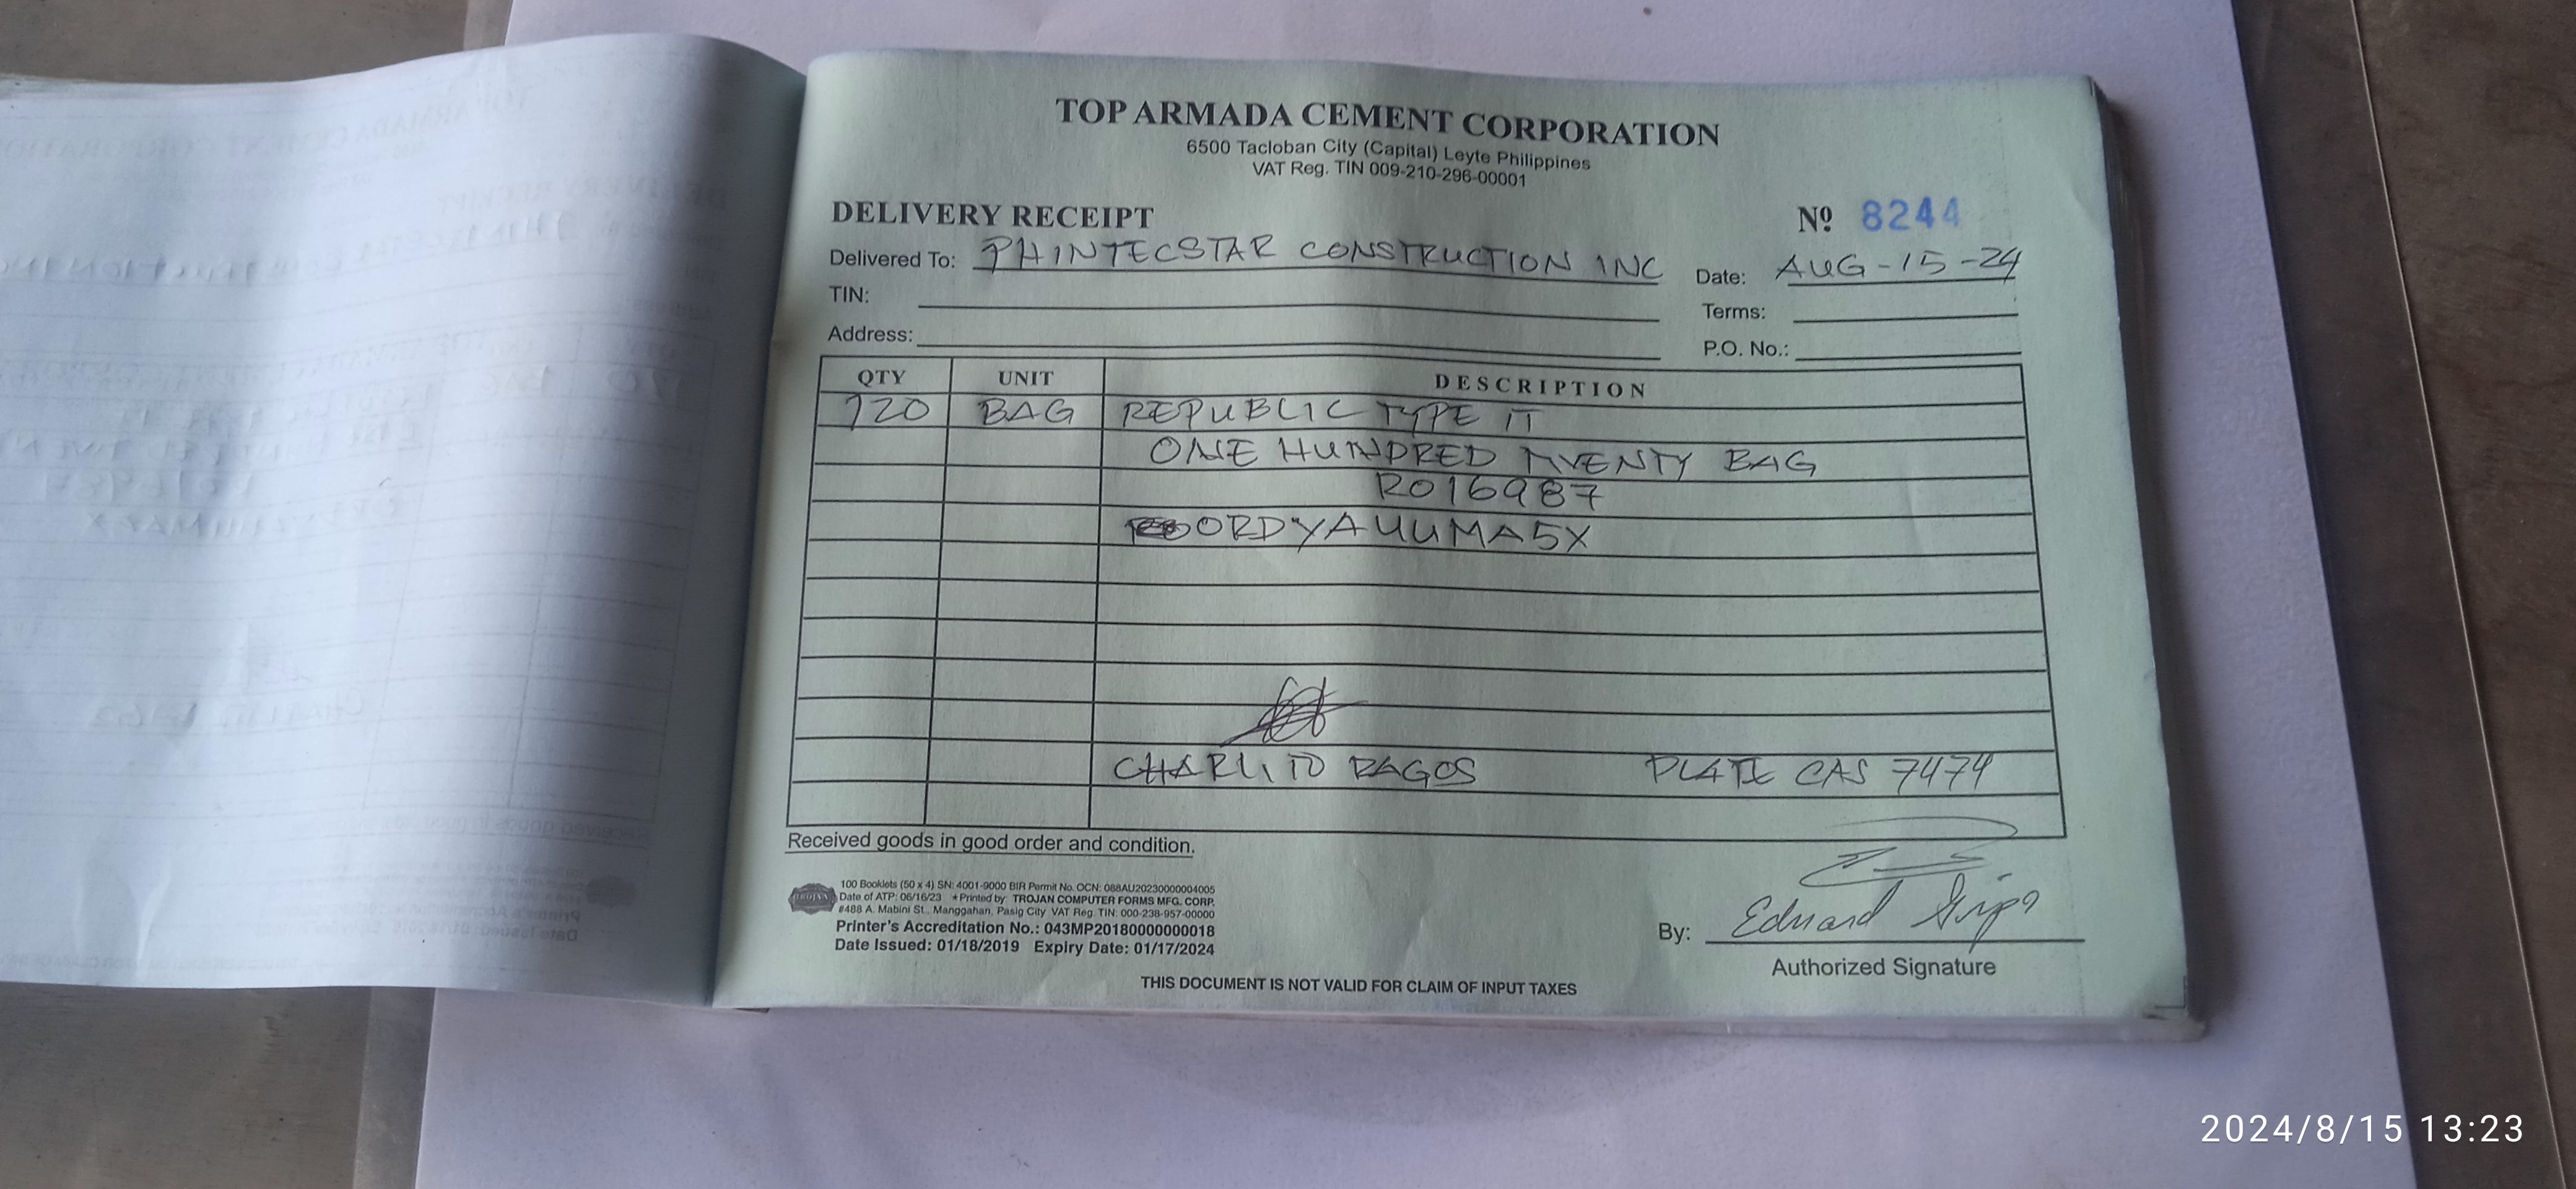 TOP ARMADA CEMENT CORPORATION
6500 Tacloban City (Capital) Leyte Philippines
VAT Reg. TIN 009-210-296-00001
DELIVERY RECEIPT
Nº 8244
Delivered To: PHINTECSTAR CONSTRUCTION INC
Date: AUG-15-24
TIN:
Terms:
Address:
P.O. No.:
QTY UNIT DESCRIPTION
120 BAG REPUBLIC TYPE 1T
ONE HUNDRED TWENTY BAG
RO16987
ORDYAUUMA5X
CHARLITO RAGOS PLATE CAS 7474
Received goods in good order and condition.
TROJAN
100 Booklets (50 x 4) SN: 4001-9000 BIR Permit No. OCN: 088AU20230000004005
Date of ATP: 06/16/23 ★Printed by: TROJAN COMPUTER FORMS MFG. CORP.
#488 A. Mabini St., Manggahan, Pasig City VAT Reg. TIN: 000-238-957-00000
Printer's Accreditation No.: 043MP20180000000018
Date Issued: 01/18/2019 Expiry Date: 01/17/2024
By: Eduard
Authorized Signature
THIS DOCUMENT IS NOT VALID FOR CLAIM OF INPUT TAXES
2024/8/15 13:23